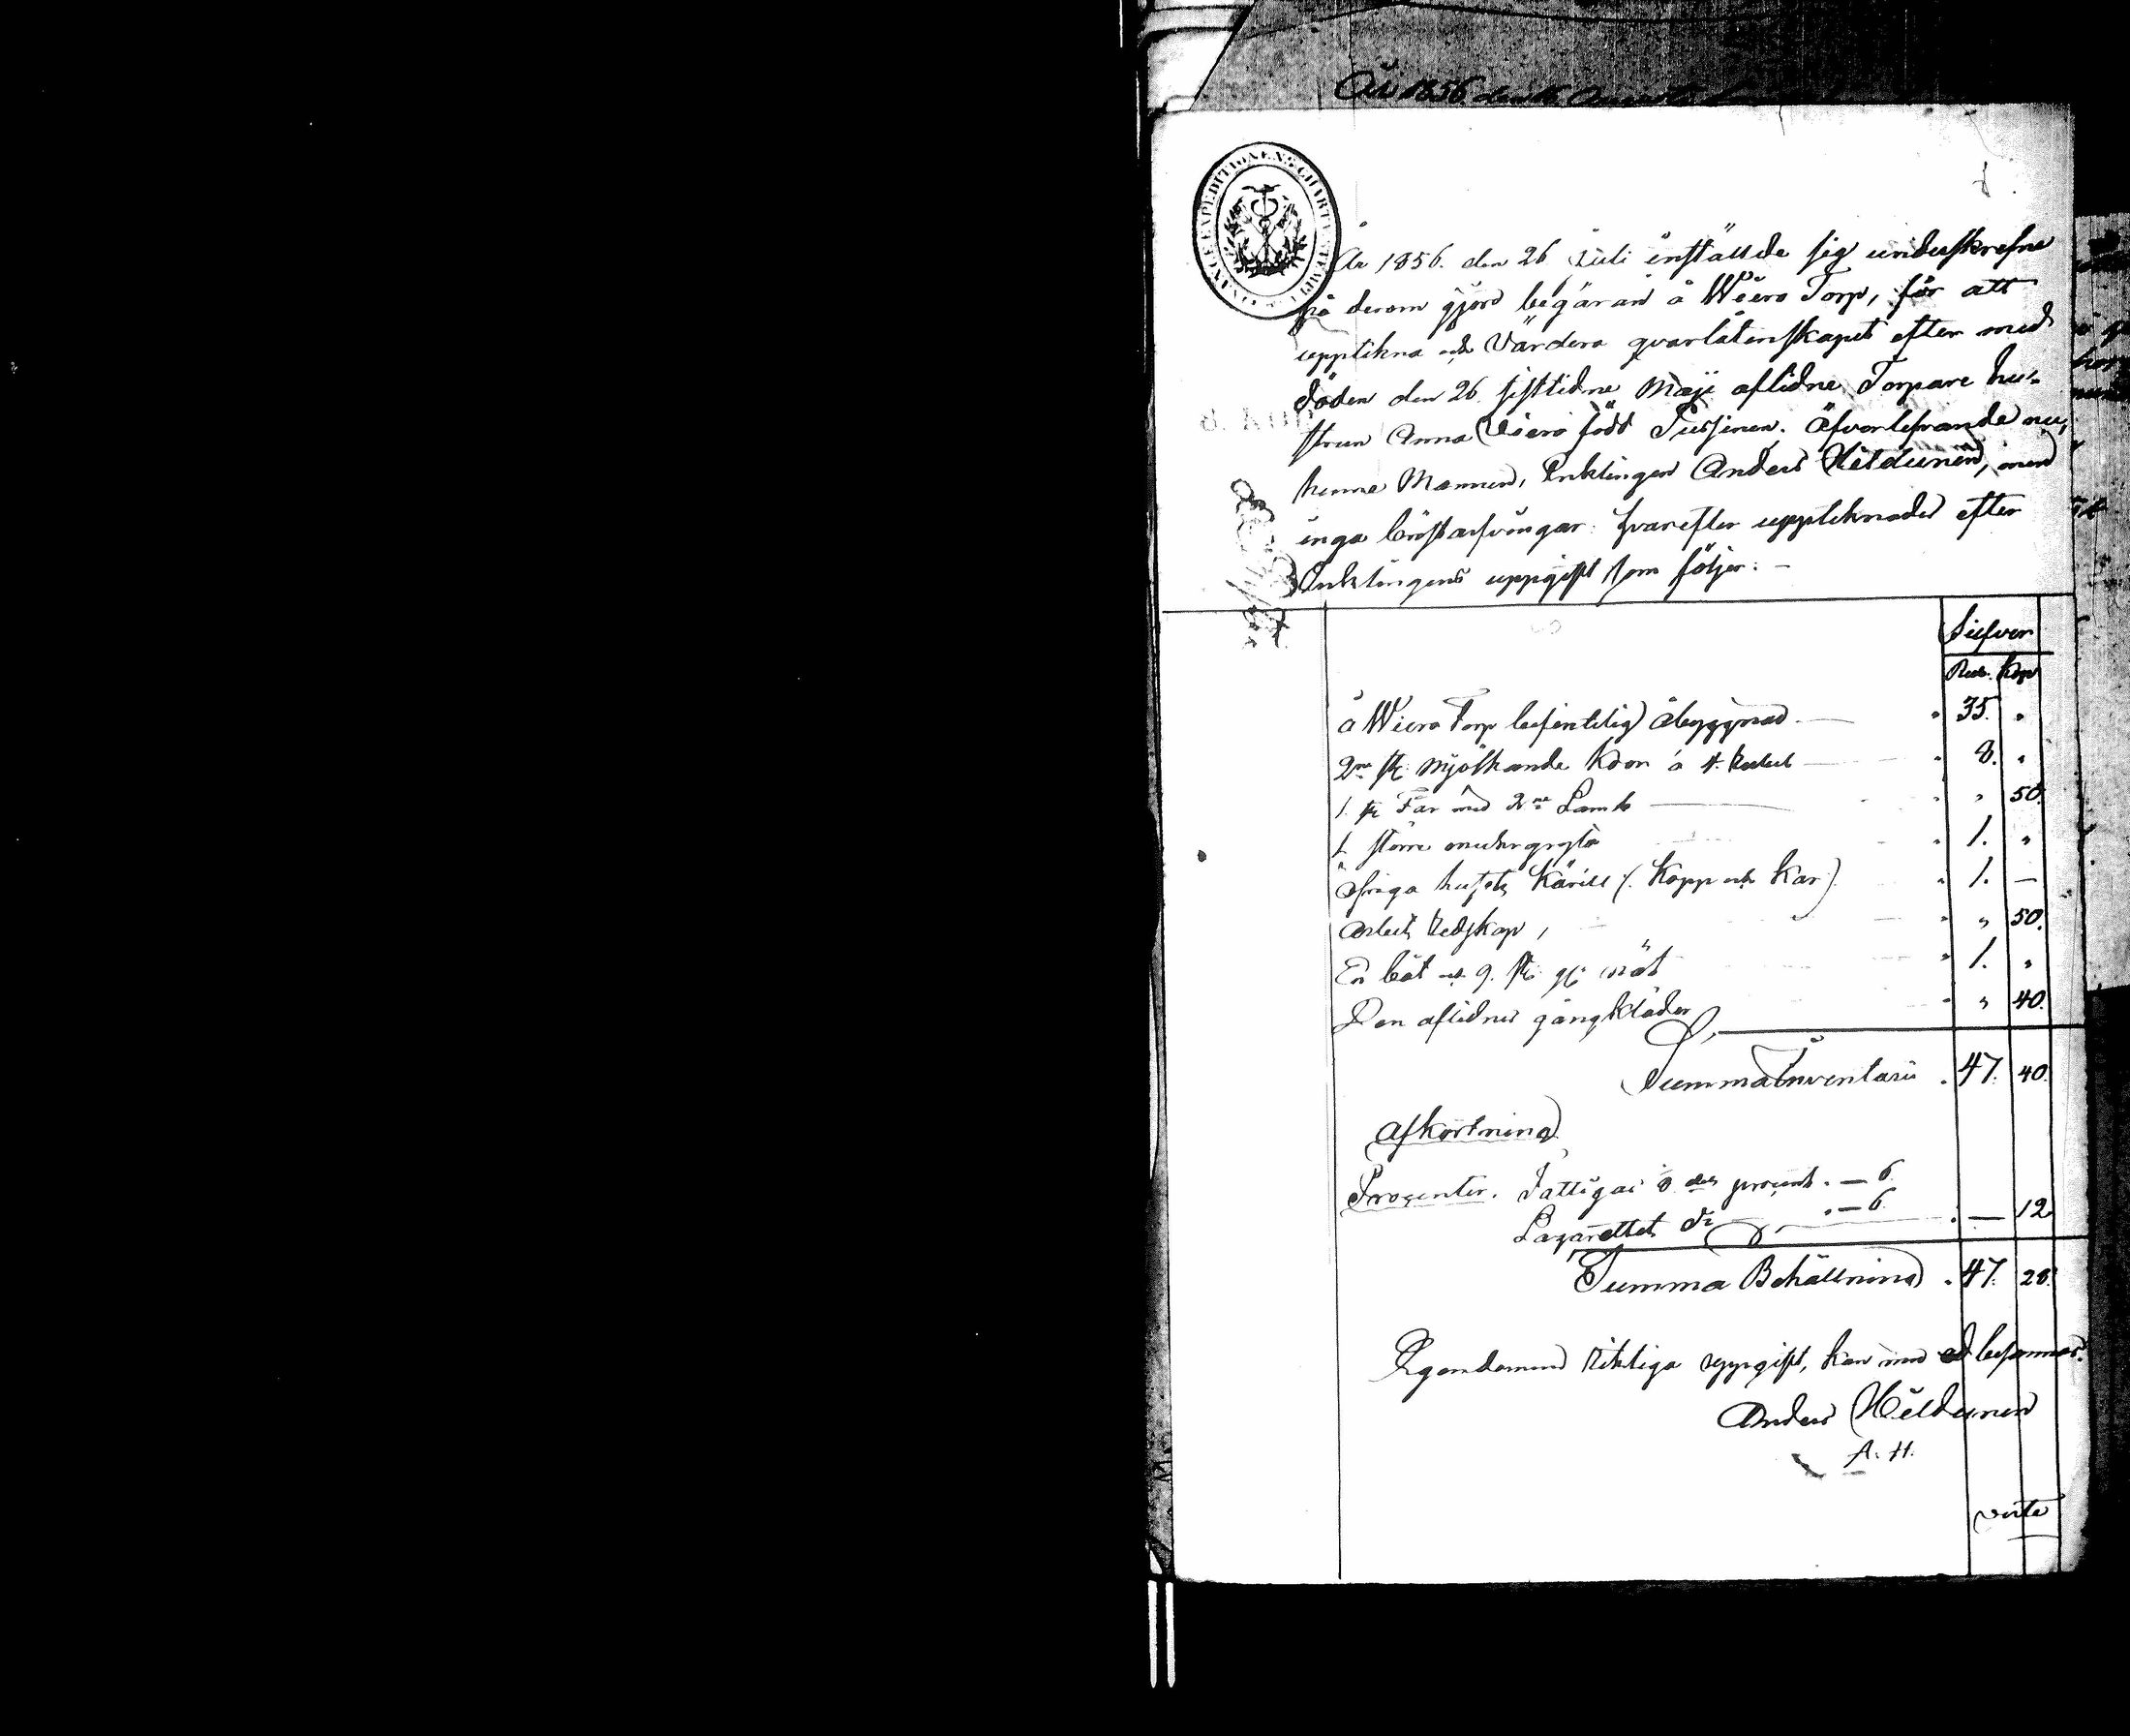 År 1856 den 16 Augusti
FINANCE EXPEDITIONENS CHARTÆ
År 1856. den 26 Juli inställde sig undeskrefne
på derom gjord begäran å Wiero Torp, för att
upptekna och Värdera qvarlåtenskapet efter med
döden den 26 sisttidne Maji aflidne Torpare hu-
strun Anna Wiero född Pussinen. Äfverlefvande
henne Mannen, Enklingen Anders Hildunen, men
inga bröstarfvingar. hvarefter uppteknades efter
Enklingens uppgift som följer: -
Silfver
Rub. Kop
å Wiero Torp befintelig åbyggnad — " 35. "
2ne st: Mjölkande Koor á 4. Rubel — " 8. "
1. st Får med 2ne Lamb — " " 50.
1 större murgryta " 1. "
öfriga husets Kärill (. Kopp och Kar) " 1. —
Arbets Redskap, — " " 50.
En båt och 9. st: gl: nät " 1. "
Den aflidnes gångkläder " " 40.
Summa Inventarii . 47. 40.
Afkortning
Procenter. Fattigas 8.dels procent . — 6.
Lazarettets do . — 6. . — 12
Summa Behållning . 47. 28.
Egendomens riktiga uppgift, kan med ed besannas.
Anders Hildunen
A. H.
verte